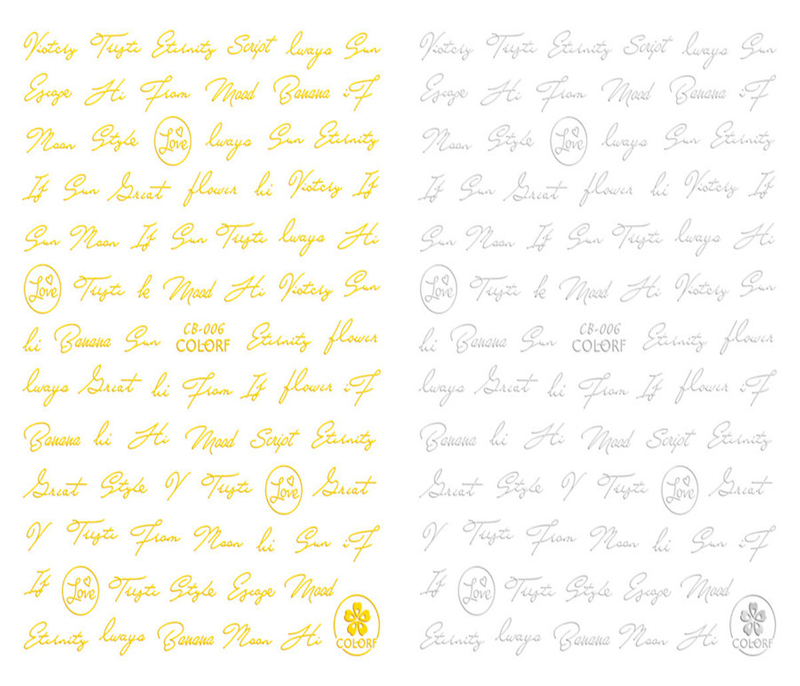 Victory Tryste Eternity Script lways Sun Victory Tryste Eternity Script lways Sun
Escape Hi From Mood Banana :F Escape Hi From Mood Banana :F
Moon Style Love lways Sun Eternity Moon Style Love lways Sun Eternity
If Sun Great flower hi Victory If If Sun Great flower hi Victory If
Sun Moon If Sun Tryste lways Hi Sun Moon If Sun Tryste lways Hi
Love Tryste k Mood Hi Victory Sun Love Tryste k Mood Hi Victory Sun
hi Banana Sun CB-006 COLORF Eternity flower hi Banana Sun CB-006 COLORF Eternity flower
lways Great hi From If flower :F lways Great hi From If flower :F
Banana hi Hi Mood Script Eternity Banana hi Hi Mood Script Eternity
Great Style V Tryste Love Great Great Style V Tryste Love Great
V Tryste From Moon hi Sun :F V Tryste From Moon hi Sun :F
If Love Tryste Style Escape Mood If Love Tryste Style Escape Mood
Eternity lways Banana Moon Hi COLORF Eternity lways Banana Moon Hi COLORF